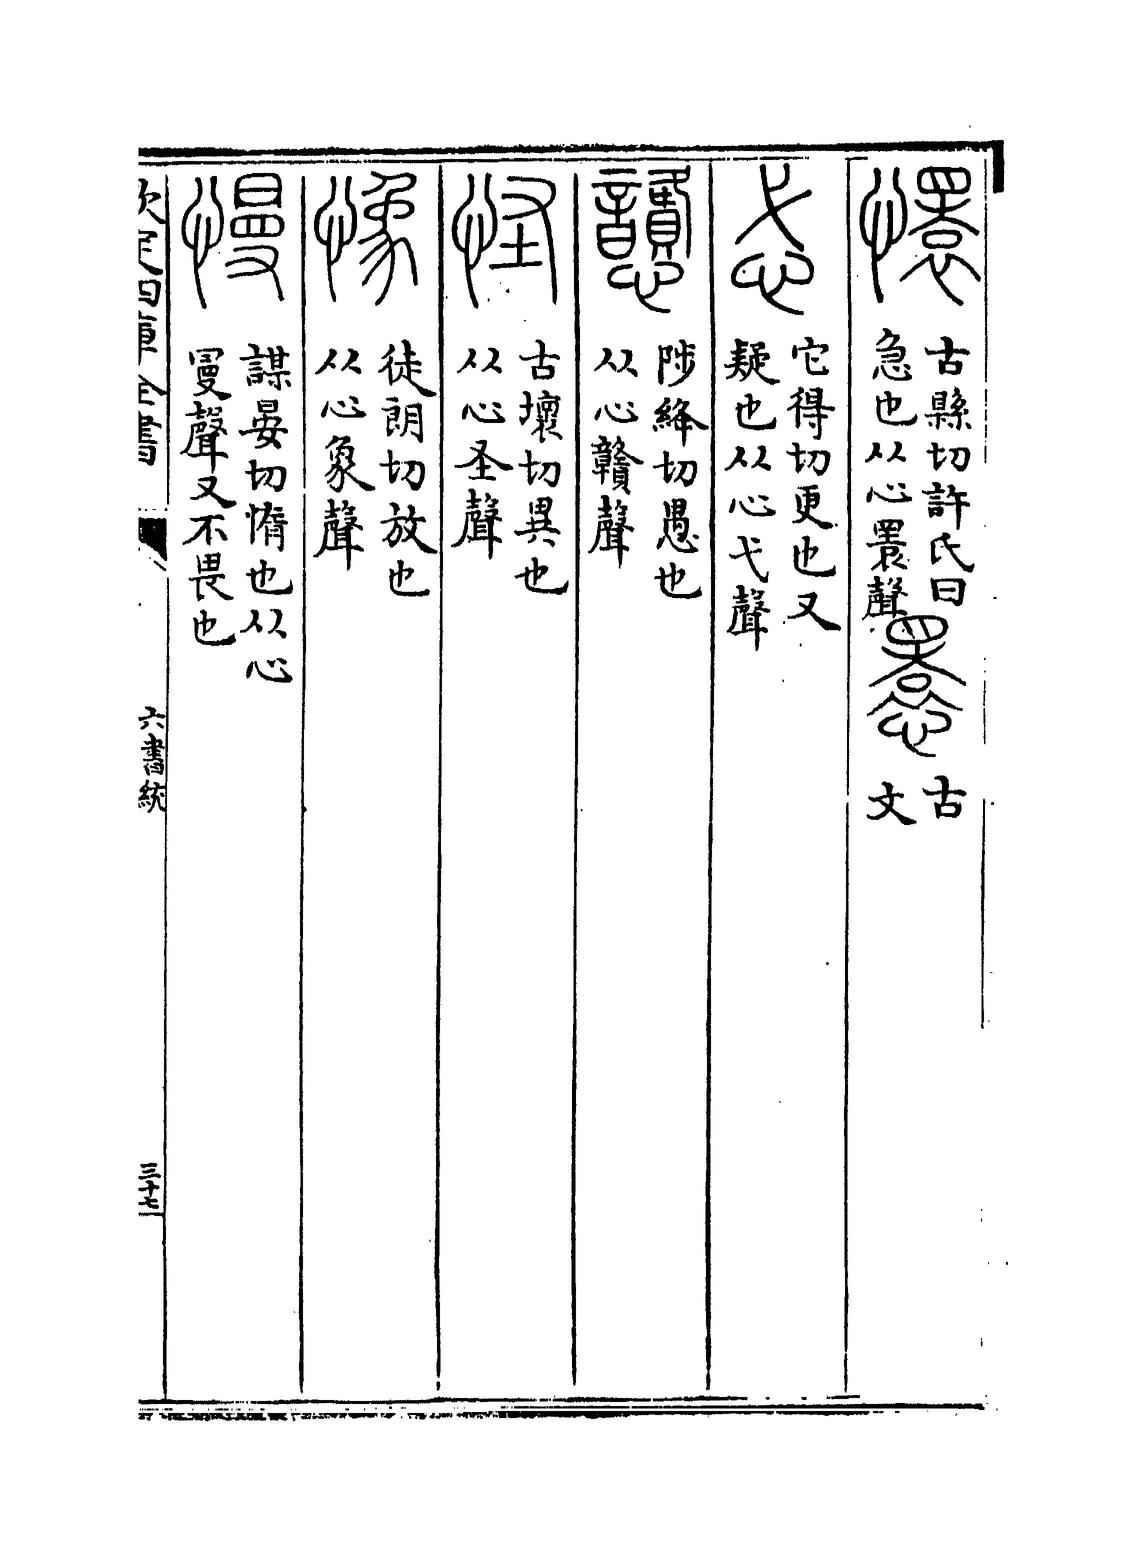 懁 古縣切許氏曰
急也从心瞏聲 𢣕 古
文
忒 它得切更也又
疑也从心弋聲
戇 陟絳切愚也
从心贛聲
怪 古壞切異也
从心圣聲
惕 徒朗切放也
从心象聲
慢 謀晏切惰也从心
曼聲又不畏也
欽定四庫全書
六書統
三十七